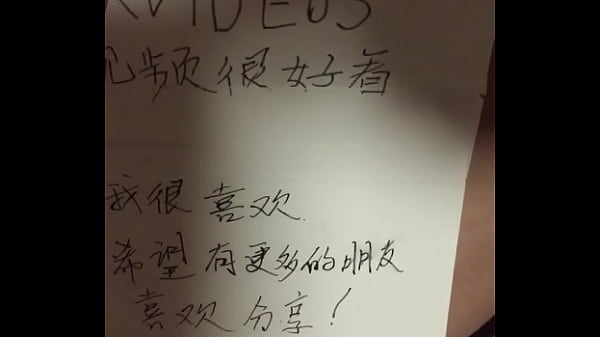 XVIDEOS
视频很好看
我很喜欢
希望有更多的朋友
喜欢分享！